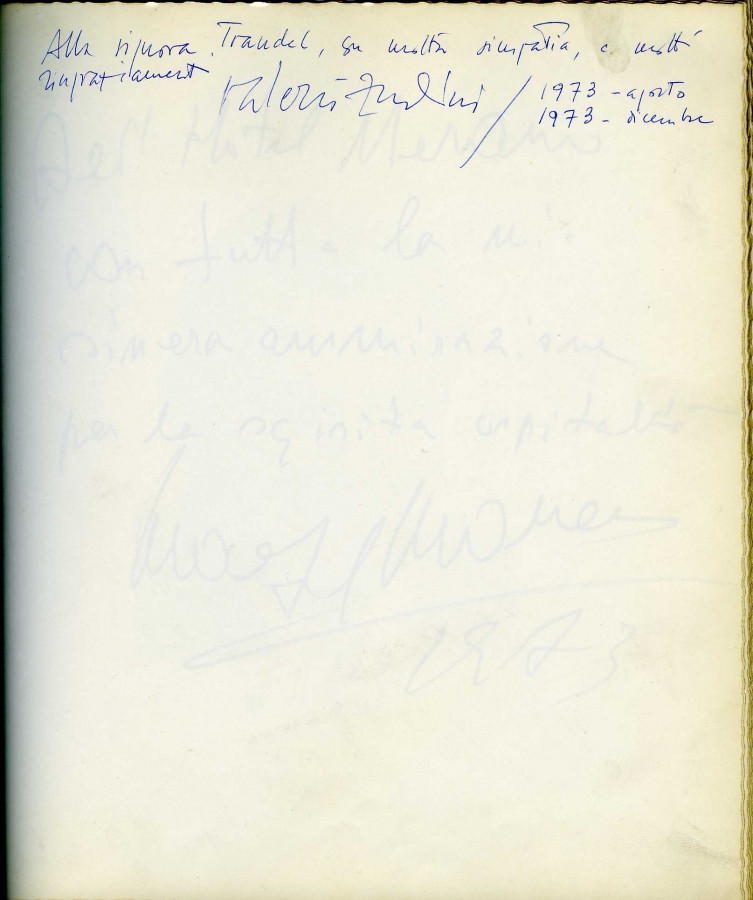 Alla signora Traudel, con molta simpatia, e molti
ringraziamenti Valerio Zurlini / 1973 - agosto
1973 - dicembre
con tutta la mia
sincera ammirazione
per la squisita ospitalità
1973